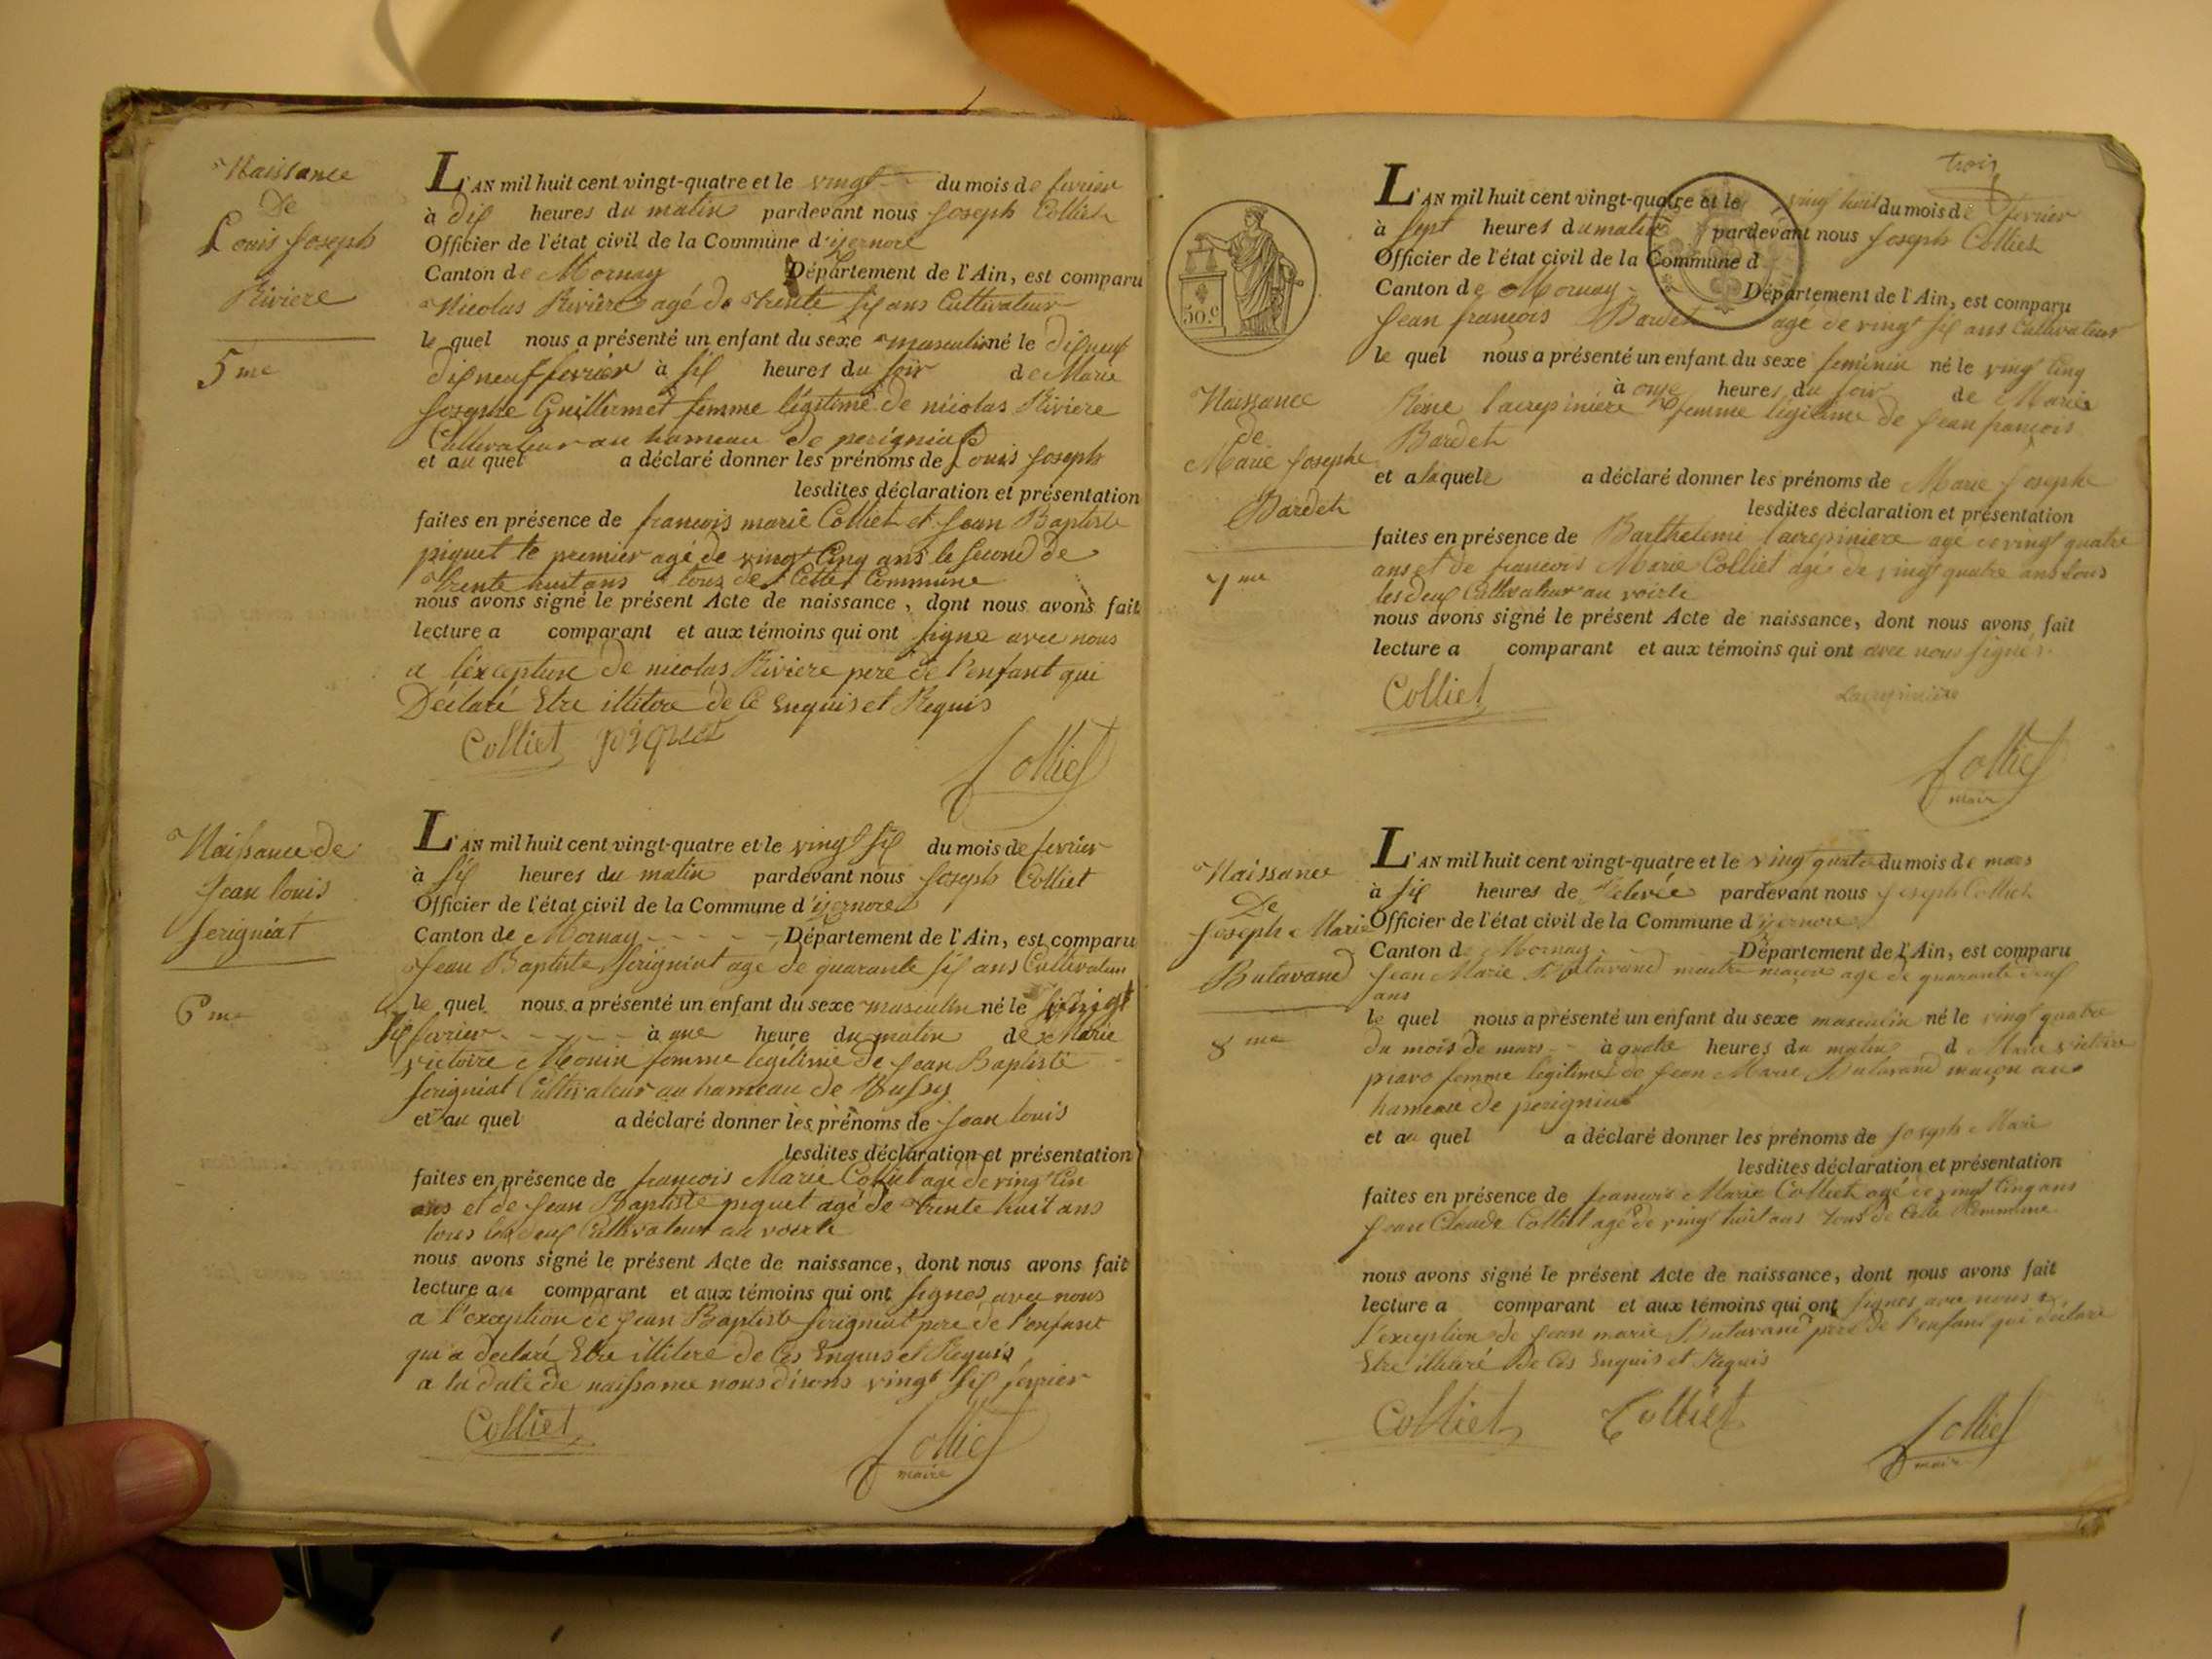 Naissance
De
Louis Joseph
Riviere
5me
L'AN mil huit cent vingt-quatre et le vingt du mois de fevrier
à dix heures du matin pardevant nous Joseph Colliet
Officier de l'état civil de la Commune d'izernore
Canton de Mornay Département de l'Ain, est comparu
Nicolas Rivière agé de trente six ans Cultivateur
le quel nous a présenté un enfant du sexe masculin né le dixneuf
dixneuf fevrier à six heures du soir de Marie
Josephe Guillermet femme légitime de nicolas Riviere
Cultivateur au hameau de perigniat
et au quel a déclaré donner les prénoms de Louis Joseph
lesdites déclaration et présentation
faites en présence de francois marie Colliet et Jean Baptiste
piquet le premier agé de vingt Cinq ans le second de
trente huit ans tous de Cette Commune
nous avons signé le présent Acte de naissance, dont nous avons fait
lecture a comparant et aux témoins qui ont signé avec nous
a l'exception de nicolas Riviere pere de l'enfant qui
Déclaré Etre illitere de Ce Enquis et Requis
Colliet piquet
Colliet
Naissance de
Jean louis
Serigniat
6me
L'AN mil huit cent vingt-quatre et le vingt six du mois de fevrier
à six heures du matin pardevant nous Joseph Colliet
Officier de l'état civil de la Commune d'izernore
Canton de Mornay Département de l'Ain, est comparu
Jean Baptiste Serigniat agé de quarante six ans Cultivateur
le quel nous a présenté un enfant du sexe masculin né le vingt
six fevrier à une heure du matin de Marie
victoire Monin femme legitime de Jean Baptiste
Serigniat Cultivateur au hameau de
et au quel a déclaré donner les prénoms de Jean louis
lesdites déclaration et présentation
faites en présence de françois Marie Colliet agé de vingt Cin
ans et de Jean Baptiste piquet agé de trente huit ans
tous les deux Cultivateur au voirle
nous avons signé le présent Acte de naissance, dont nous avons fait
lecture au comparant et aux témoins qui ont signés avec nous
a l'exception de Jean Baptiste Serigniat pere de l'enfant
qui a declaré Etre illitere de Ces Enquis et Requis
a la date de naissance nous disons vingt six fevrier
Colliet
Colliet
maire
trois
50.c
L'AN mil huit cent vingt-quatre et le vingt huit du mois de fevrier
à sept heures du matin pardevant nous Joseph Colliet
Officier de l'état civil de la Commune d
Canton de Mornay Département de l'Ain, est comparu
Jean françois Bardet agé de vingt six ans Cultivateur
le quel nous a présenté un enfant du sexe feminin né le vingt Cinq
à onze heures du soir de Marie
Réne lacrepiniere femme légitime de Jean françois
Bardet
et a laquele a déclaré donner les prénoms de Marie Josephe
lesdites déclaration et présentation
faites en présence de Barthelemi lacrepiniere agé de vingt quatre
ans et de francois Marie Colliet agé de vingt quatre ans tous
les deux Cultivateur au voirle
nous avons signé le présent Acte de naissance, dont nous avons fait
lecture a comparant et aux témoins qui ont avec nous signés
Colliet Lacrepiniere
Colliet
mair
Naissance
de
Marie Josephe
Bardet
7me
Naissance
De
Joseph Marie
Butavand
8me
L'AN mil huit cent vingt-quatre et le vingt quatre du mois de mars
à six heures de relevée pardevant nous Joseph Colliet
Officier de l'état civil de la Commune d izernore
Canton de Mornay Département de l'Ain, est comparu
Jean Marie Butavand maitre maçon agé de quarante deux
ans
le quel nous a présenté un enfant du sexe masculin né le vingt quatre
du mois de mars à quatre heures du matin d Marie victoire
piaro femme legitime de Jean Marie Butavand maçon au
hameau de perigniat
et au quel a déclaré donner les prénoms de Joseph Marie
lesdites déclaration et présentation
faites en présence de francois Marie Colliet agé de vingt Cinq ans
Jean Claude Colliet agé de vingt huit ans tous de Cette Commune
nous avons signé le présent Acte de naissance, dont nous avons fait
lecture a comparant et aux témoins qui ont signés avec nous a
l'exception de Jean marie Butavand pere de l'enfant qui déclare
Etre illiteré de Ces Enquis et Requis
Colliet Colliet
Colliet
mair